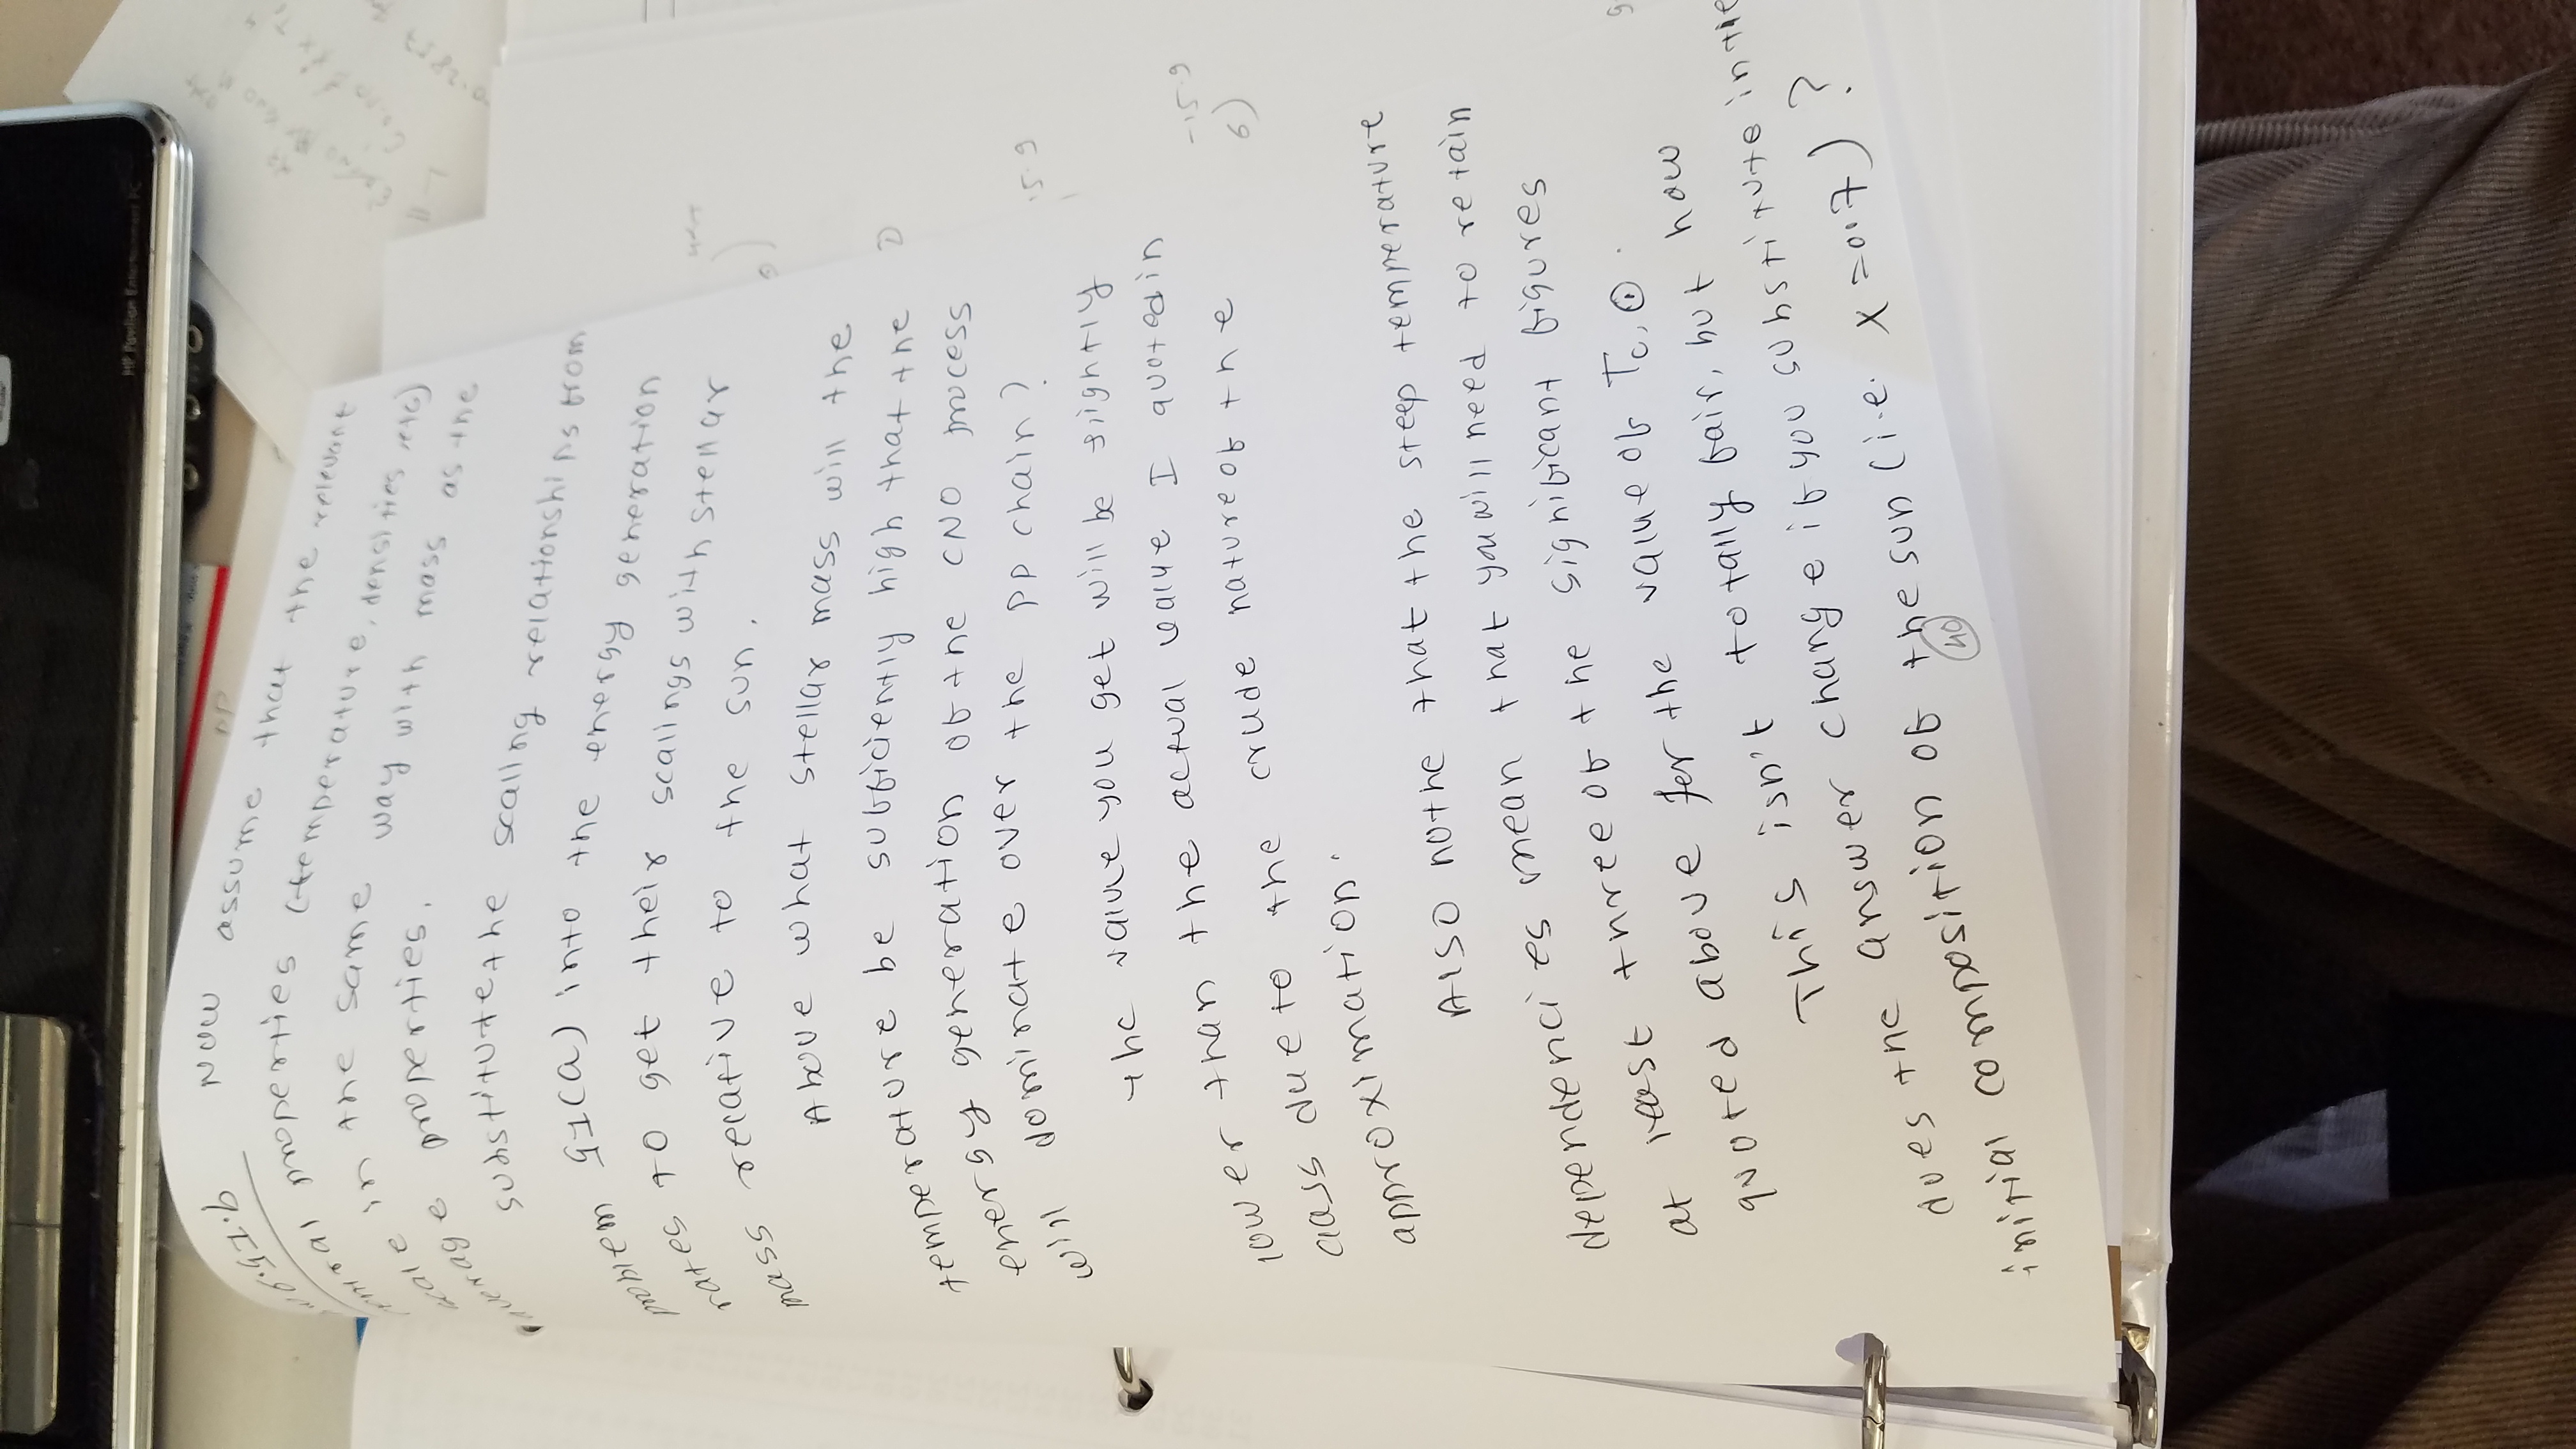 HP Pavilion Entertainment PC
Now assume that the relevant
properties (temperature, densities etc)
scale in the same way with mass as the
average properties.
substitute the scaling relationships from
problem G1(a) into the energy generation
rates to get their scalings with stellar
mass relative to the sun.
Above what stellar mass will the
temperature be sufficiently high that the
energy generation of the CNO process
will dominate over the pp chain?
The value you get will be slightly
lower than the actual value I quoted in
class due to the crude nature of the
approximation.
Also nothe that the steep temperature
dependencies mean that you will need to retain
at least three of the significant figures
quoted above for the value of Tc,⊙.
This isn't totally fair, but how
does the answer change if you substitute in the
initial composition of the sun (i.e. x=0.7)?
40
15.9
-15.9
6)